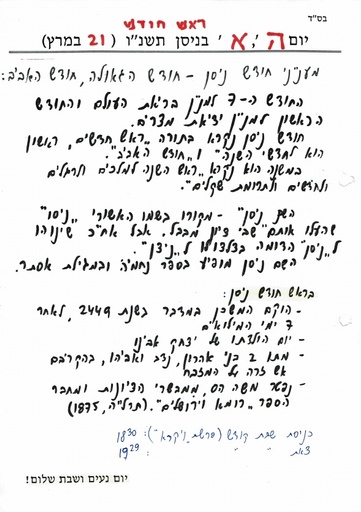 בס"ד
ראש חודש
יום ה', א' בניסן תשנ"ו (21 במרץ)
מעניני חודש ניסן - חודש הגאולה, חודש האביב:
החודש ה-7 למנין בריאת העולם והחודש
הראשון למנין יציאת מצרים.
חודש ניסן נקרא בתורה "ראש חדשים, ראשון
הוא לחדשי השנה" ו"חודש האביב".
במשנה הוא נקרא "ראש השנה למלכים ולרגלים
ולחדשים ולתרומת שקלים".
השם "ניסן" - מקורו בשמו האשורי "ניסנו"
שהעלו אותם שבי ציון מבבל. אבל אח"כ שינוהו
ל"ניסן" הדומה בצלצולו ל"ניצן".
השם ניסן מופיע בספר נחמיה ובמגילת אסתר.
בראש חודש ניסן:
- הוקם המשכן במדבר בשנת 2449, לאחר
7 ימי המילואים
- יום הולדתו של יצחק אבינו
- מתו 2 בני אהרון, נדב ואביהו, בהקריבם
אש זרה על המזבח
- נפטר משה הס, ממבשרי הציונות ומחבר
הספר "רומא וירושלים". (תרל"ה, 1875)
כניסת שבת קודש (פרשת "ויקרא"): 1830
צאת " " : 1929
יום נעים ושבת שלום!